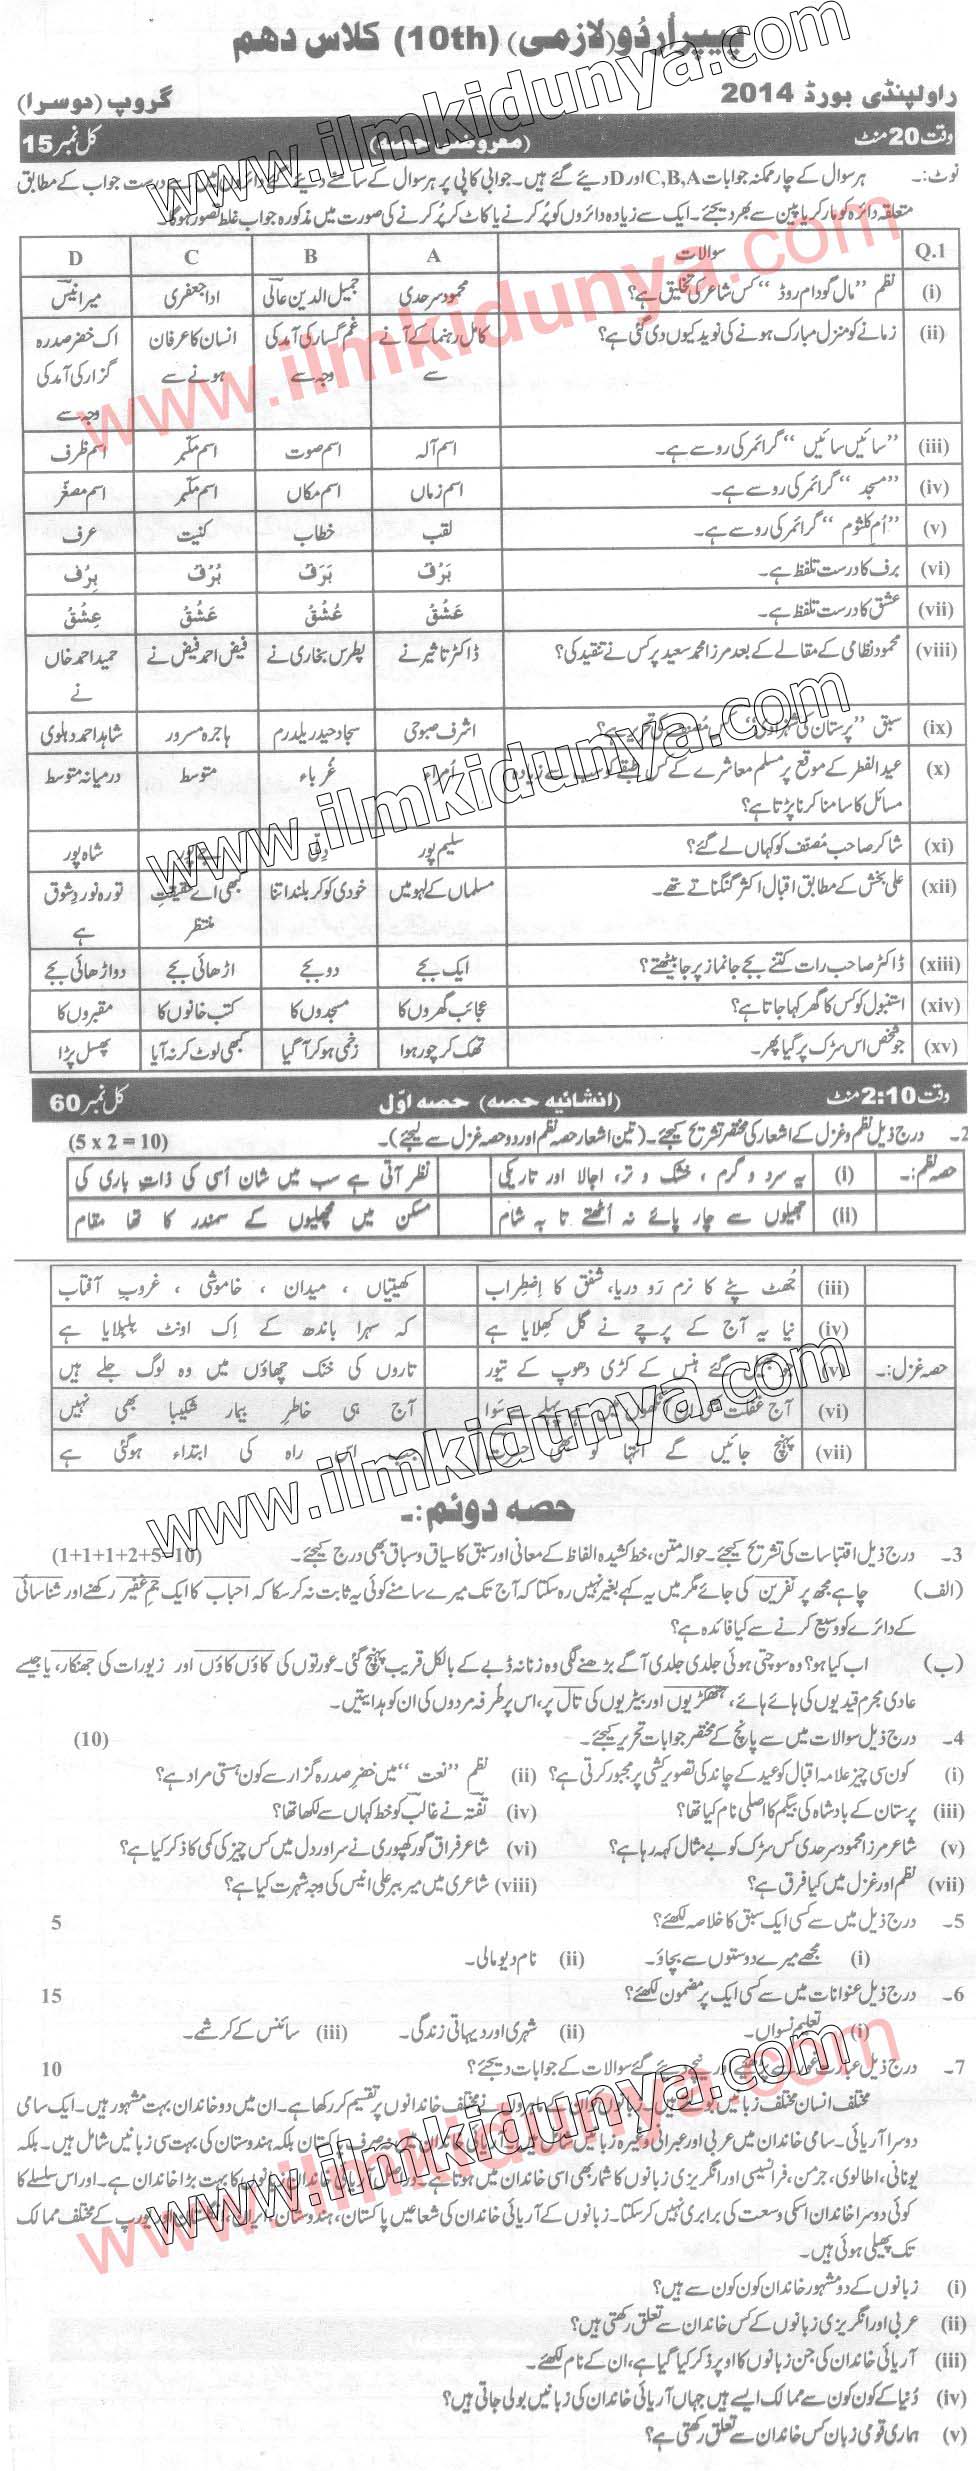 پیپر اُردو (لازمی) (10th) کلاس دهم
راولپنڈی بورڈ 2014 گروپ (دوسرا)
وقت 20 منٹ (معروضی حصہ) کل نمبر 15
نوٹ:۔ ہر سوال کے چار ممکنہ جوابات C,B,A اور D دیئے گئے ہیں۔ جوابی کاپی پر ہر سوال کے سامنے دیئے گئے دائروں میں سے درست جواب کے مطابق
متعلقہ دائرہ کو مارکر یا پین سے بھر دیجئے۔ ایک سے زیادہ دائروں کو پُر کرنے یا کاٹ کر پُر کرنے کی صورت میں مذکورہ جواب غلط تصور ہوگا۔
Q.1 سوالات A B C D
(i) نظم ”مال گودام روڈ“ کس شاعر کی تخلیق ہے؟ محمود سرحدی جمیل الدین عالی ادا جعفری میر انیس
(ii) زمانے کو منزل مبارک ہونے کی نوید کیوں دی گئی ہے؟ کامل رہنما کے آنے سے غم گسار کی آمد کی وجہ سے انسان کا عرفان ہونے سے اک خضر صدرہ گزار کی آمد کی وجہ سے
(iii) ”سائیں سائیں“ گرائمر کی رو سے ہے۔ اسم آلہ اسم صوت اسم مکبّر اسم ظرف
(iv) ”مسجد“ گرائمر کی رو سے ہے۔ اسم زماں اسم مکاں اسم مکبّر اسم مصغّر
(v) ”اُم کلثوم“ گرائمر کی رو سے ہے۔ لقب خطاب کنیت عرف
(vi) برف کا درست تلفظ ہے۔ بَرْف بَرَف بُرْف بِرْف
(vii) عشق کا درست تلفظ ہے۔ عَشْق عُشْق عَشَق عِشْق
(viii) محمود نظامی کے مقالے کے بعد مرزا محمد سعید پر کس نے تنقید کی؟ ڈاکٹر تاثیر نے پطرس بخاری نے فیض احمد فیض نے حمید احمد خاں نے
(ix) سبق ”پرستان کی شہزادی“ کس مُصنف کی تحریر ہے؟ اشرف صبوحی سجاد حیدر یلدرم ہاجرہ مسرور شاہد احمد دہلوی
(x) عید الفطر کے موقع پر مسلم معاشرے کے کس طبقے کو سب سے زیادہ مسائل کا سامنا کرنا پڑتا ہے؟ اُمراء غُرباء متوسط درمیانہ متوسط
(xi) شاکر صاحب مُصنف کو کہاں لے گئے؟ سلیم پور دِلّی جے پور شاہ پور
(xii) علی بخش کے مطابق اقبال اکثر گنگناتے تھے۔ مسلماں کے لہو میں خودی کو کر بلند اتنا کبھی اے حقیقتِ منتظر تو رہ نوردِ شوق ہے
(xiii) ڈاکٹر صاحب رات کتنے بجے جانماز پر جا بیٹھتے؟ ایک بجے دو بجے اڑھائی بجے دو اڑھائی بجے
(xiv) استنبول کو کس کا گھر کہا جاتا ہے؟ عجائب گھروں کا مسجدوں کا کتب خانوں کا مقبروں کا
(xv) جو شخص اس سڑک پر گیا پھر۔ تھک کر چور ہوا زخمی ہو کر آ گیا کبھی لوٹ کر نہ آیا پھسل پڑا
وقت 2:10 منٹ (انشائیہ حصہ) حصہ اوّل کل نمبر 60
2۔ درج ذیل نظم و غزل کے اشعار کی مختصر تشریح کیجئے۔ (تین اشعار حصہ نظم اور دو حصہ غزل سے لیجئے)۔ (5 x 2 = 10)
حصہ نظم:۔ (i) یہ سرد و گرم ، خشک و تر، اجالا اور تاریکی نظر آتی ہے سب میں شان اُسی کی ذاتِ باری کی
(ii) جھیلوں سے چار پائے نہ اُٹھتے تا بہ شام مسکن میں مچھلیوں کے سمندر کا تھا مقام
(iii) جُھٹ پٹے کا نرم رَو دریا، شفق کا اِضطراب کھیتیاں ، میدان ، خاموشی ، غروبِ آفتاب
(iv) نیا یہ آج کے پرچے نے گل کھلایا ہے کہ سہرا باندھ کے اِک اونٹ بلبلایا ہے
حصہ غزل:۔ (v) جو جھیل گئے ہنس کے کڑی دھوپ کے تیور تاروں کی خنک چھاؤں میں وہ لوگ جلے ہیں
(vi) آج غفلت بھی ان آنکھوں میں ہے پہلے سے سَوا آج ہی خاطرِ بیمار شکیبا بھی نہیں
(vii) پہنچ جائیں گے انتہا کو بھی حسرت جب اس راہ کی ابتداء ہوگئی ہے
حصہ دوئم:۔
3۔ درج ذیل اقتباسات کی تشریح کیجئے۔ حوالہ متن، خط کشیدہ الفاظ کے معانی اور سبق کا سیاق و سباق بھی درج کیجئے۔ (1+1+1+2+5=10)
(الف) چاہے مجھ پر نفرین کی جائے مگر میں یہ کہے بغیر نہیں رہ سکتا کہ آج تک میرے سامنے کوئی یہ ثابت نہ کر سکا کہ احباب کا ایک جمِ غفیر رکھنے اور شناسائی
کے دائرے کو وسیع کرنے سے کیا فائدہ ہے؟
(ب) اب کیا ہو؟ وہ سوچتی ہوئی جلدی جلدی آگے بڑھنے لگی وہ زنانہ ڈبے کے بالکل قریب پہنچ گئی۔ عورتوں کی کاؤں کاؤں اور زیورات کی جھنکار، یا جیسے
عادی مجرم قیدیوں کی ہائے ہائے، ہتھکڑیوں اور بیڑیوں کی تال پر، اس پر طُرفہ مردوں کی ان کو ہدایتیں۔
4۔ درج ذیل سوالات میں سے پانچ کے مختصر جوابات تحریر کیجئے۔ (10)
(i) کون سی چیز علامہ اقبال کو عید کے چاند کی تصویر کشی پر مجبور کرتی ہے؟ (ii) نظم ”نعت“ میں خضرِ صدرہ گزار سے کون ہستی مراد ہے؟
(iii) پرستان کے بادشاہ کی بیگم کا اصلی نام کیا تھا؟ (iv) تفتہ نے غالب کو خط کہاں سے لکھا تھا؟
(v) شاعر مرزا محمود سرحدی کس سڑک کو بے مثال کہہ رہا ہے؟ (vi) شاعر فراق گورکھپوری نے سر اور دل میں کس چیز کی کمی کا ذکر کیا ہے؟
(vii) نظم اور غزل میں کیا فرق ہے؟ (viii) شاعری میں میر ببر علی انیس کی وجہ شہرت کیا ہے؟
5۔ درج ذیل میں سے کسی ایک سبق کا خلاصہ لکھئے؟ 5
(i) مجھے میرے دوستوں سے بچاؤ۔ (ii) نام دیو مالی۔
6۔ درج ذیل عنوانات میں سے کسی ایک پر مضمون لکھئے؟ 15
(i) تعلیم نسواں۔ (ii) شہری اور دیہاتی زندگی۔ (iii) سائنس کے کرشمے۔
7۔ درج ذیل عبارت غور سے پڑھیئے اور نیچے دیئے گئے سوالات کے جوابات دیجئے؟ 10
مختلف انسان مختلف زبانیں بولتے ہیں۔ زبانوں کو ان کے ماہروں نے مختلف خاندانوں پر تقسیم کر رکھا ہے۔ ان میں دو خاندان بہت مشہور ہیں۔ ایک سامی
دوسرا آریائی۔ سامی خاندان میں عربی اور عبرانی وغیرہ زبانیں شامل ہیں۔ آریائی خاندان میں نہ صرف پاکستان بلکہ ہندوستان کی بہت سی زبانیں شامل ہیں۔ بلکہ
یونانی، اطالوی، جرمن، فرانسیسی اور انگریزی زبانوں کا شمار بھی اسی خاندان میں ہوتا ہے۔ دراصل آریائی خاندان زبانوں کا بہت بڑا خاندان ہے۔ اور اس سلسلے کا
کوئی دوسرا خاندان اسکی وسعت کی برابری نہیں کر سکتا۔ زبانوں کے آریائی خاندان کی شعاعیں پاکستان، ہندوستان، ایران، انگلستان اور یورپ کے مختلف ممالک
تک پھیلی ہوئی ہیں۔
(i) زبانوں کے دو مشہور خاندان کون کون سے ہیں؟
(ii) عربی اور انگریزی زبانوں کے کس خاندان سے تعلق رکھتی ہیں؟
(iii) آریائی خاندان کی جن زبانوں کا اوپر ذکر کیا گیا ہے، ان کے نام لکھئے۔
(iv) دُنیا کے کون کون سے ممالک ایسے ہیں جہاں آریائی خاندان کی زبانیں بولی جاتی ہیں؟
(v) ہماری قومی زبان کس خاندان سے تعلق رکھتی ہے؟
www.ilmkidunya.com
www.ilmkidunya.com
www.ilmkidunya.com
www.ilmkidunya.com
www.ilmkidunya.com
www.ilmkidunya.com